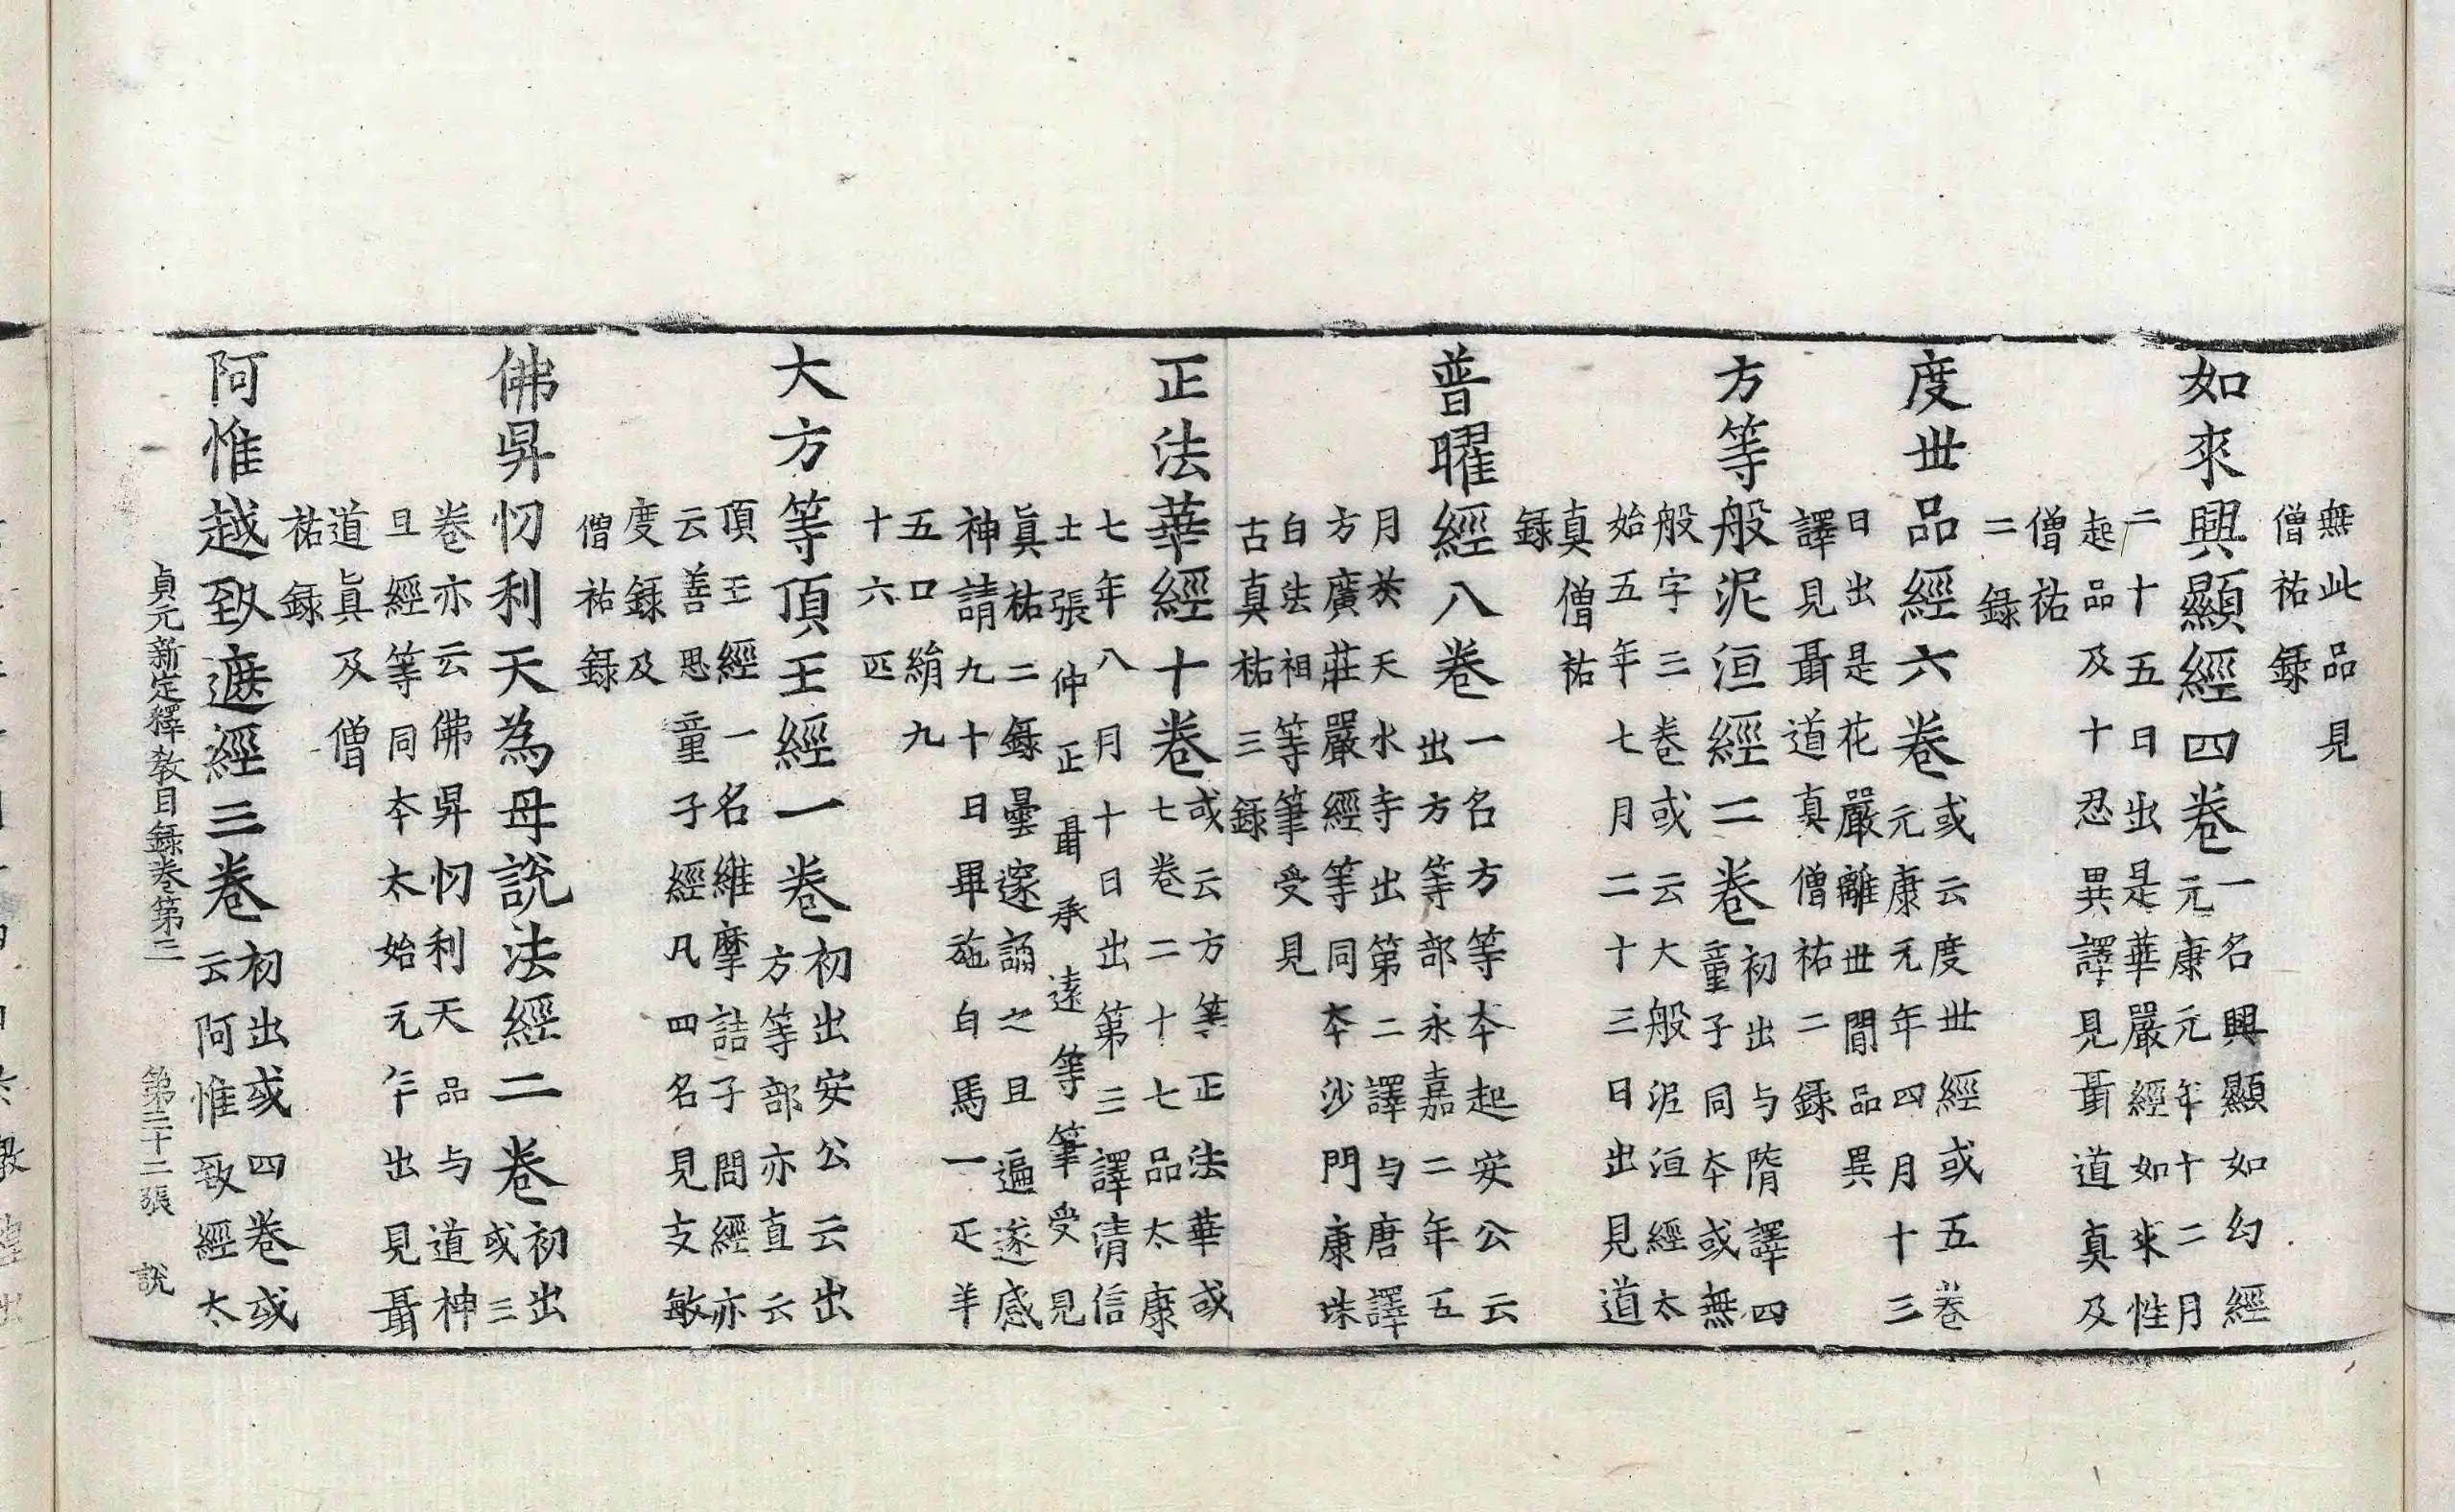 無此品見
僧祐錄
如來興顯經四卷
一名興顯如幻經
元康元年十二月
二十五日出是華嚴經如來性
起品及十忍異譯見聶道真及
僧祐
二錄
度世品經六卷
或云度世經或五卷
元康元年四月十三
日出是花嚴離世間品異
譯見聶道真僧祐二錄
方等般泥洹經二卷
初出与隋譯四
童子同夲或無
般字三卷或云大般泥洹經太
始五年七月二十三日出見道
真僧祐
錄
普曜經八卷
一名方等夲起安公云
出方等部永嘉二年五
月於天水寺出第二譯与唐譯
方廣莊嚴經等同夲沙門康珠
白法祖等筆受見
古真祐三錄
正法華經十卷
或云方等正法華或
七卷二十七品太康
七年八月十日出第三譯清信
士張仲正聶承遠等筆受見
真祐二錄曇邃誦之且遍遂感
神請九十日畢施白馬一疋羊
五口絹九
十六匹
大方等頂王經一卷
初出安公云出
方等部亦直云
頂王經一名維摩詰子問經亦
云善思童子經凡四名見支敏
度錄及
僧祐錄
佛昇忉利天為母說法經二卷
初出
或三
卷亦云佛昇忉利天品与道神
旦經等同夲太始元年出見聶
道真及僧
祐錄
阿惟越致遮經三卷
初出或四卷或
云阿惟致經太
貞元新定釋教目錄卷第三 第三十二張 說